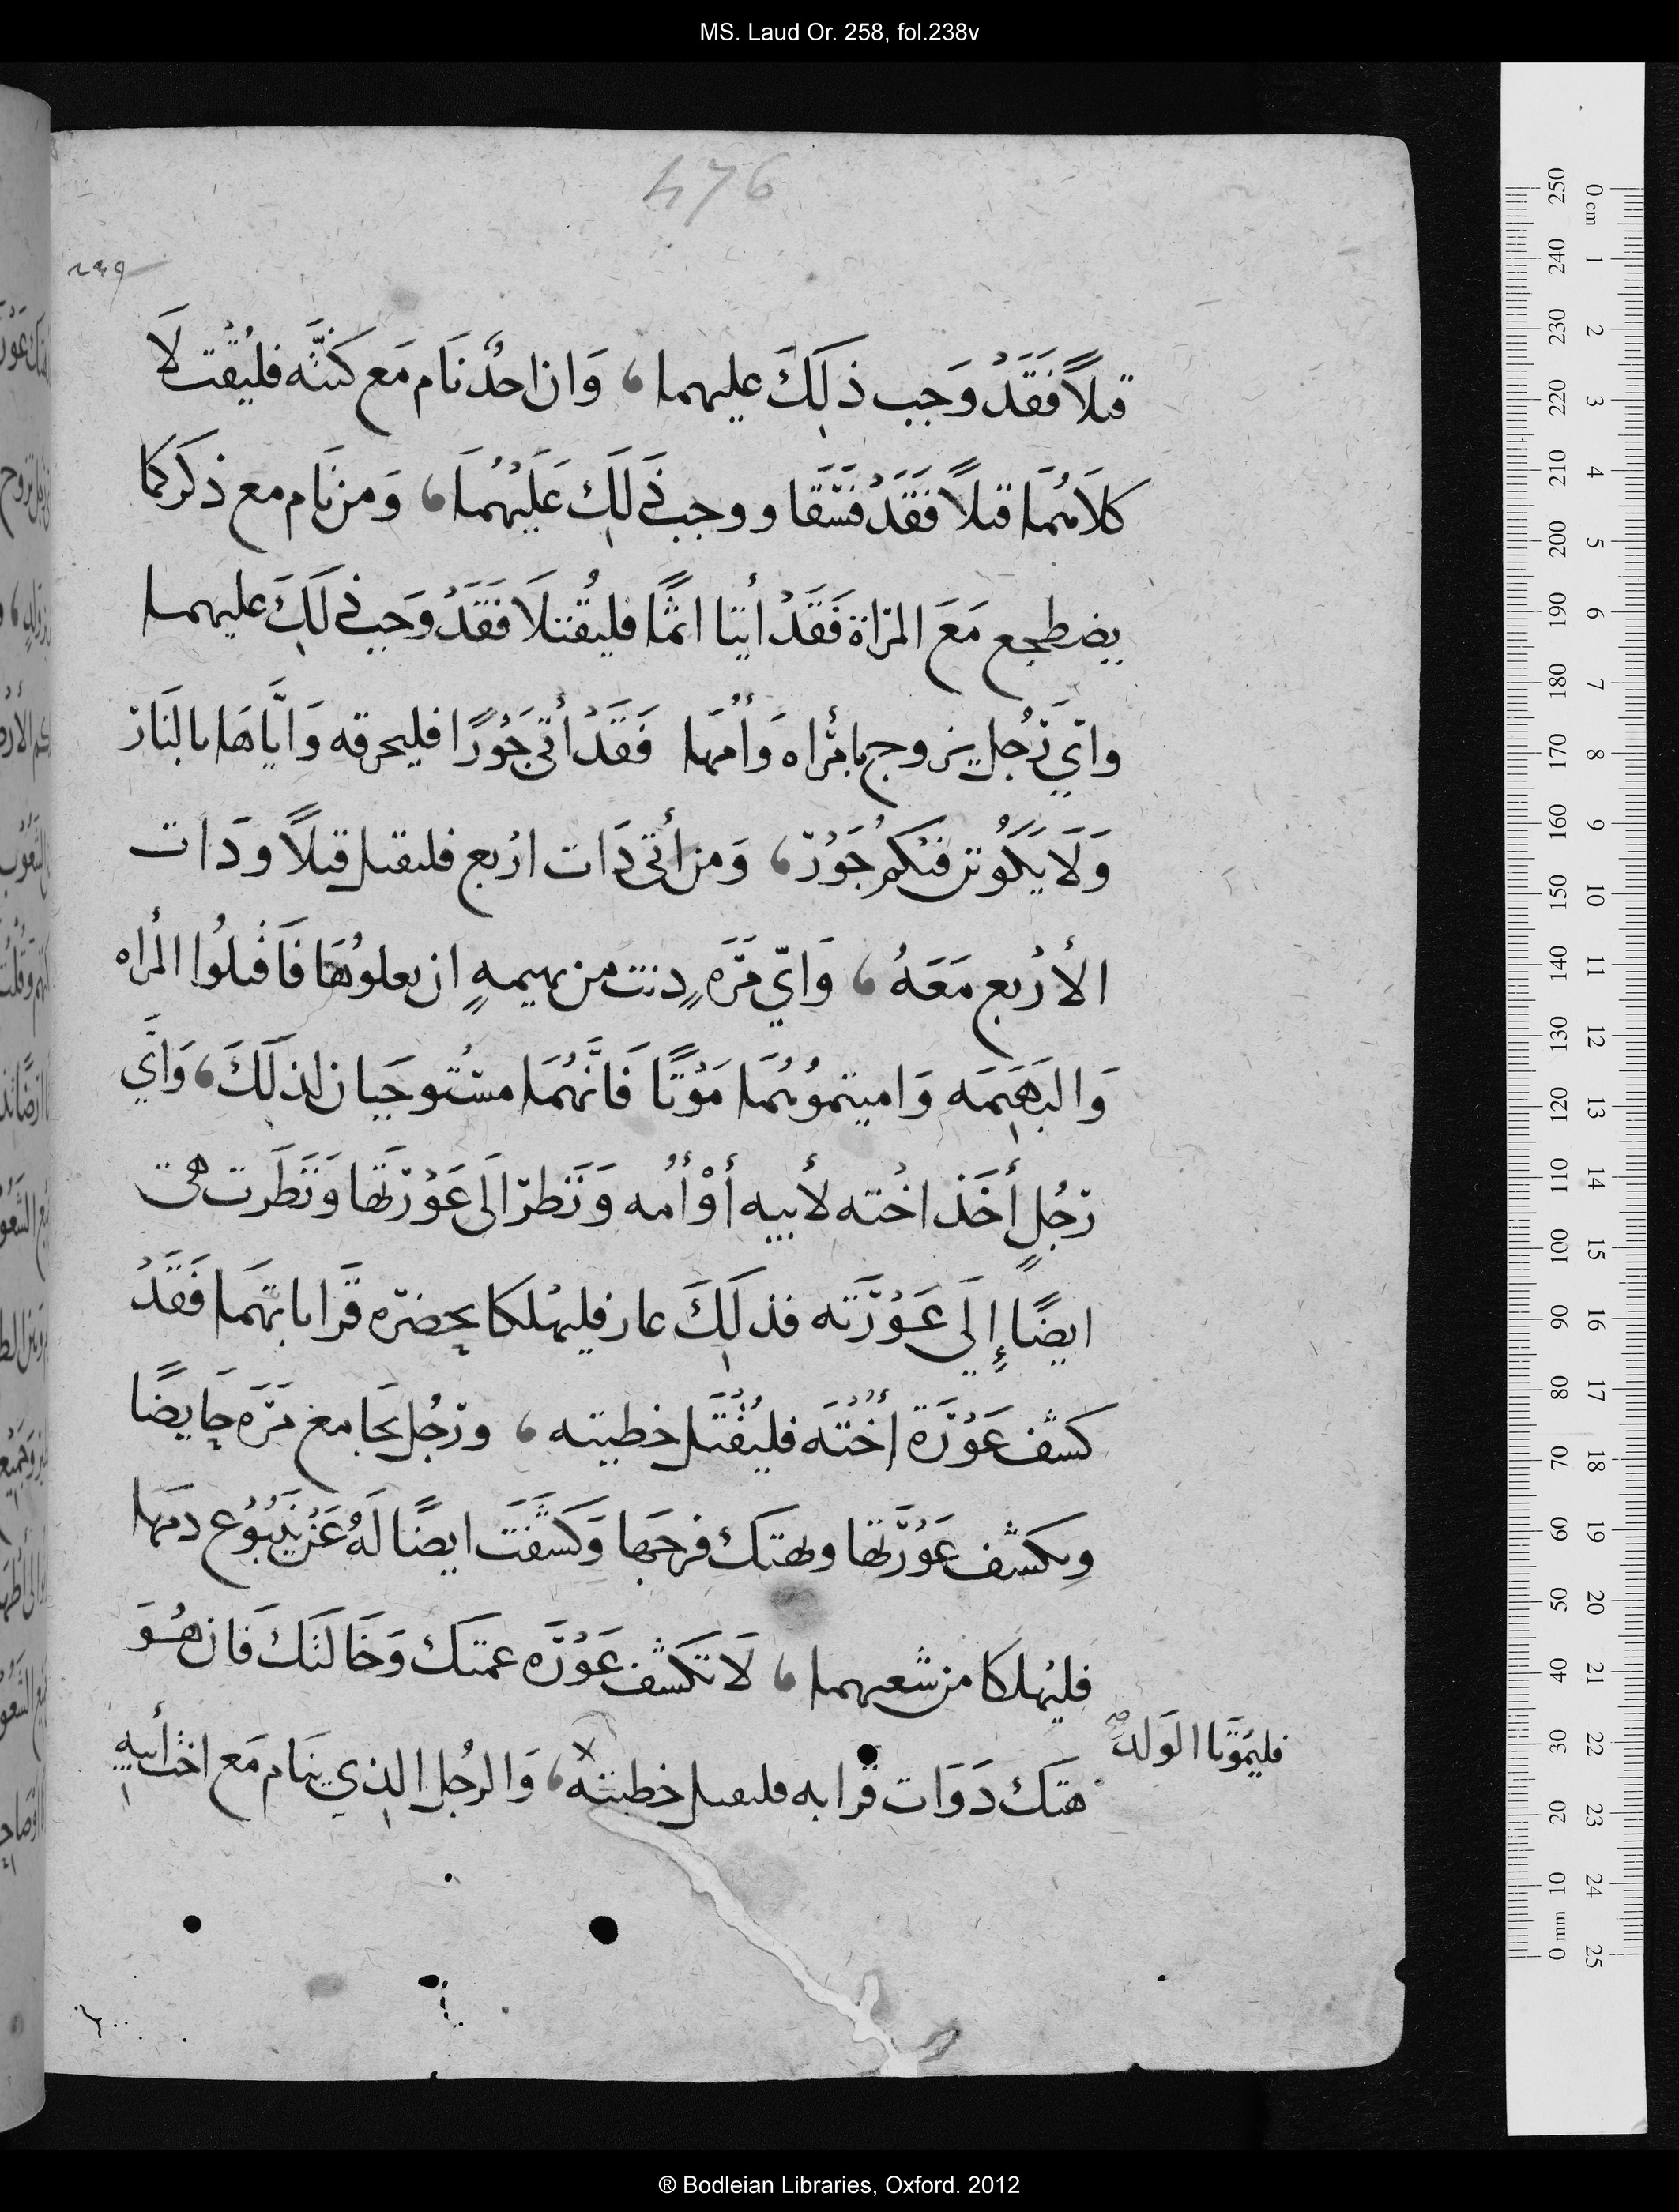 MS. Laud Or. 258, fol.238v
476
٢٣٩
قتلاً فَقَدْ وَجب ذلِكَ عليهما، وَان احدٌ نَام مَع كنَّته فليُقْتلَا
كلاَهُمَا قتلاً فَقَدْ فسَّقا ووجب ذَلِك عَلَيْهُمَا، وَمن نَام مع ذكر كما
يضطجع مَعَ المرّاة فَقَدْ أتيا اثمًا فليُقتلَا فَقَدْ وَجب ذلِكَ عليهما
وايّ رّجُل يزوج بامرّاه وَأُمْهَا فَقَدْ أتى جَوْرًا فليحرقه وَايَّاهَا بالنَار
وَلَا يَكُونن فيكم جَوْر، وَمن أتى دَات ارْبع فليقتل قتلاً ودَات
الأرْبع مَعَهُ، وَايّ مَرَّهٍ دنت من بهيمهٍ ان يعلوْهَا فَاقْتلوُا المرأه
وَالبَهِيمَه وَاميتموُهُمَا مَوْتًا فَانَّهُمَا مسْتوجَبان لذلِكَ، وَايَّ
رّجُلٍ أَخَذ اخْته لأبيه أوْ أُمه وَنَظرّ الَى عَوْرّتَهَا وَنَظَرت هى
ايضًا إِلَي عَوْرَّته فذلِكَ عار فليهْلكا بحضرّه قَرابابتهمَا فَقَدْ
كشف عَوْرَّة أُخْتَه فليُقْتَل خطيته، ورّجُل يجَامع مَرَّه حَايضًا
وِيكشف عَوْرَّتها ويهتك فرجهَا وَكشَفَت ايضًا لَهُ عَنْ يَنْبُوْع دمَها
فليُهلكا من شعبهما، لَا تكَشف عَوْرَّه عمتك وَخَالتَك فَان هُوَ
هتك دَوَات قرابه فليقبل خطيته، وَالرجُل الذِي ينَام مَع اخت أبيهِ
فليمَوتا الوَلد
® Bodleian Libraries, Oxford. 2012